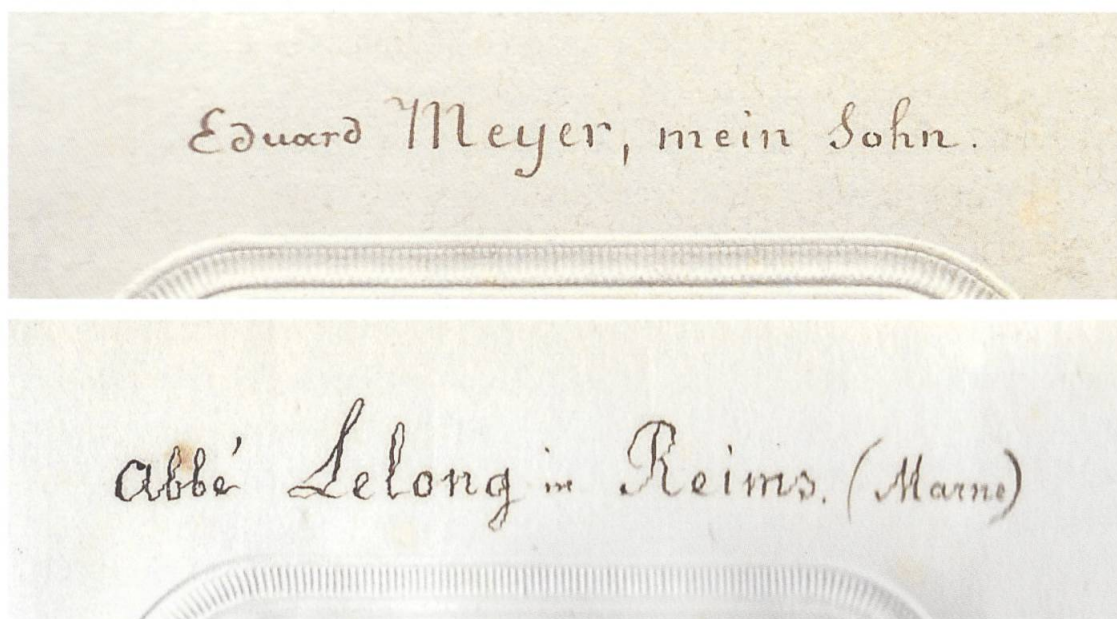 Eduard Meyer, mein Sohn.
abbé Lelong in Reims. (Marne)